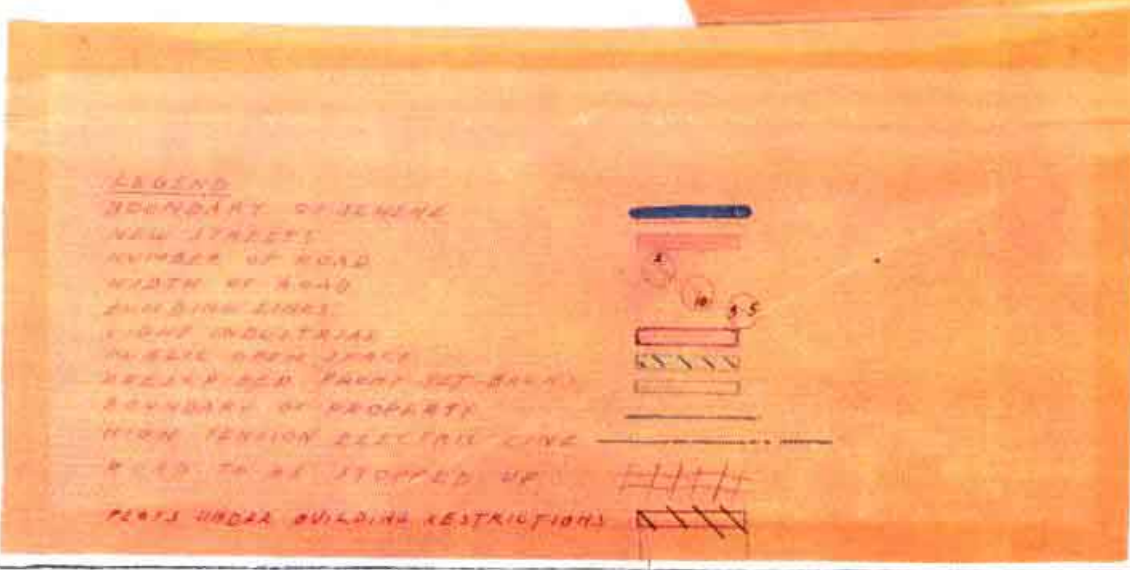 LEGEND
BOUNDARY OF SCHEME
NEW STREETS
NUMBER OF ROAD 2
WIDTH OF ROAD 10
BUILDING LINES 5·5
LIGHT INDUSTRIAL
PUBLIC OPEN SPACE
FRONT SET-BACKS
BOUNDARY OF PROPERTY
HIGH TENSION ELECTRIC LINE
ROAD TO BE STOPPED UP
PLOTS UNDER BUILDING RESTRICTIONS